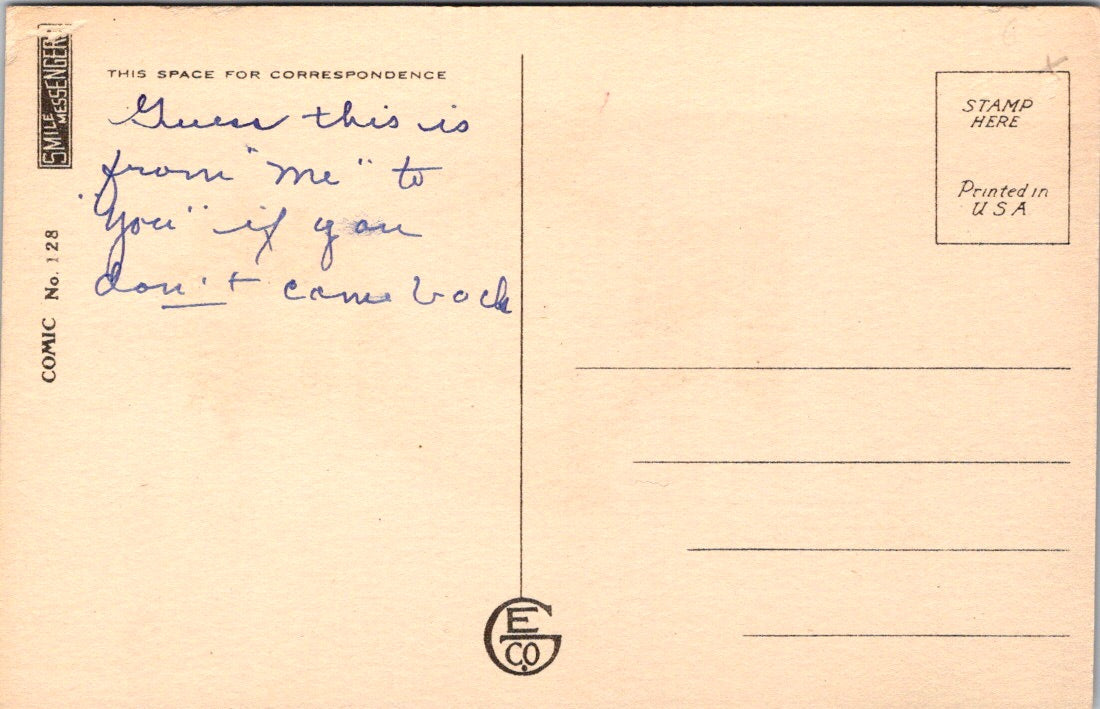 SMILE MESSENGER
COMIC No. 128
THIS SPACE FOR CORRESPONDENCE
Guess this is
from "me" to
"You" if you
don't come back
STAMP
HERE
Printed in
U S A
G E CO.